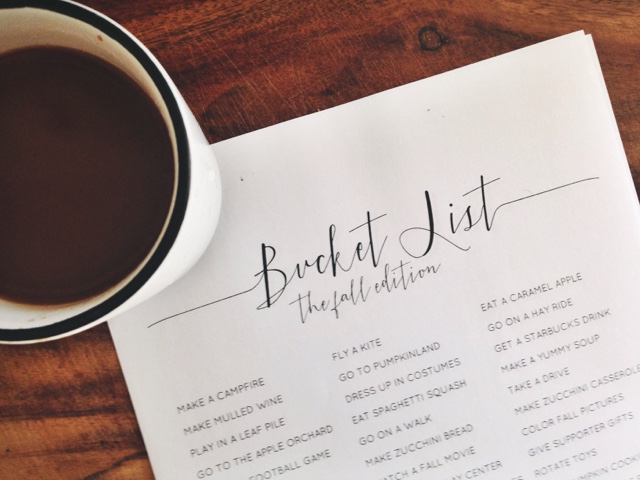 Bucket List
the fall edition
MAKE A CAMPFIRE
MAKE MULLED WINE
PLAY IN A LEAF PILE
GO TO THE APPLE ORCHARD
FOOTBALL GAME
FLY A KITE
GO TO PUMPKINLAND
DRESS UP IN COSTUMES
EAT SPAGHETTI SQUASH
GO ON A WALK
MAKE ZUCCHINI BREAD
A FALL MOVIE
CENTER
EAT A CARAMEL APPLE
GO ON A HAY RIDE
GET A STARBUCKS DRINK
MAKE A YUMMY SOUP
TAKE A DRIVE
MAKE ZUCCHINI CASSEROLE
COLOR FALL PICTURES
GIVE SUPPORTER GIFTS
ROTATE TOYS